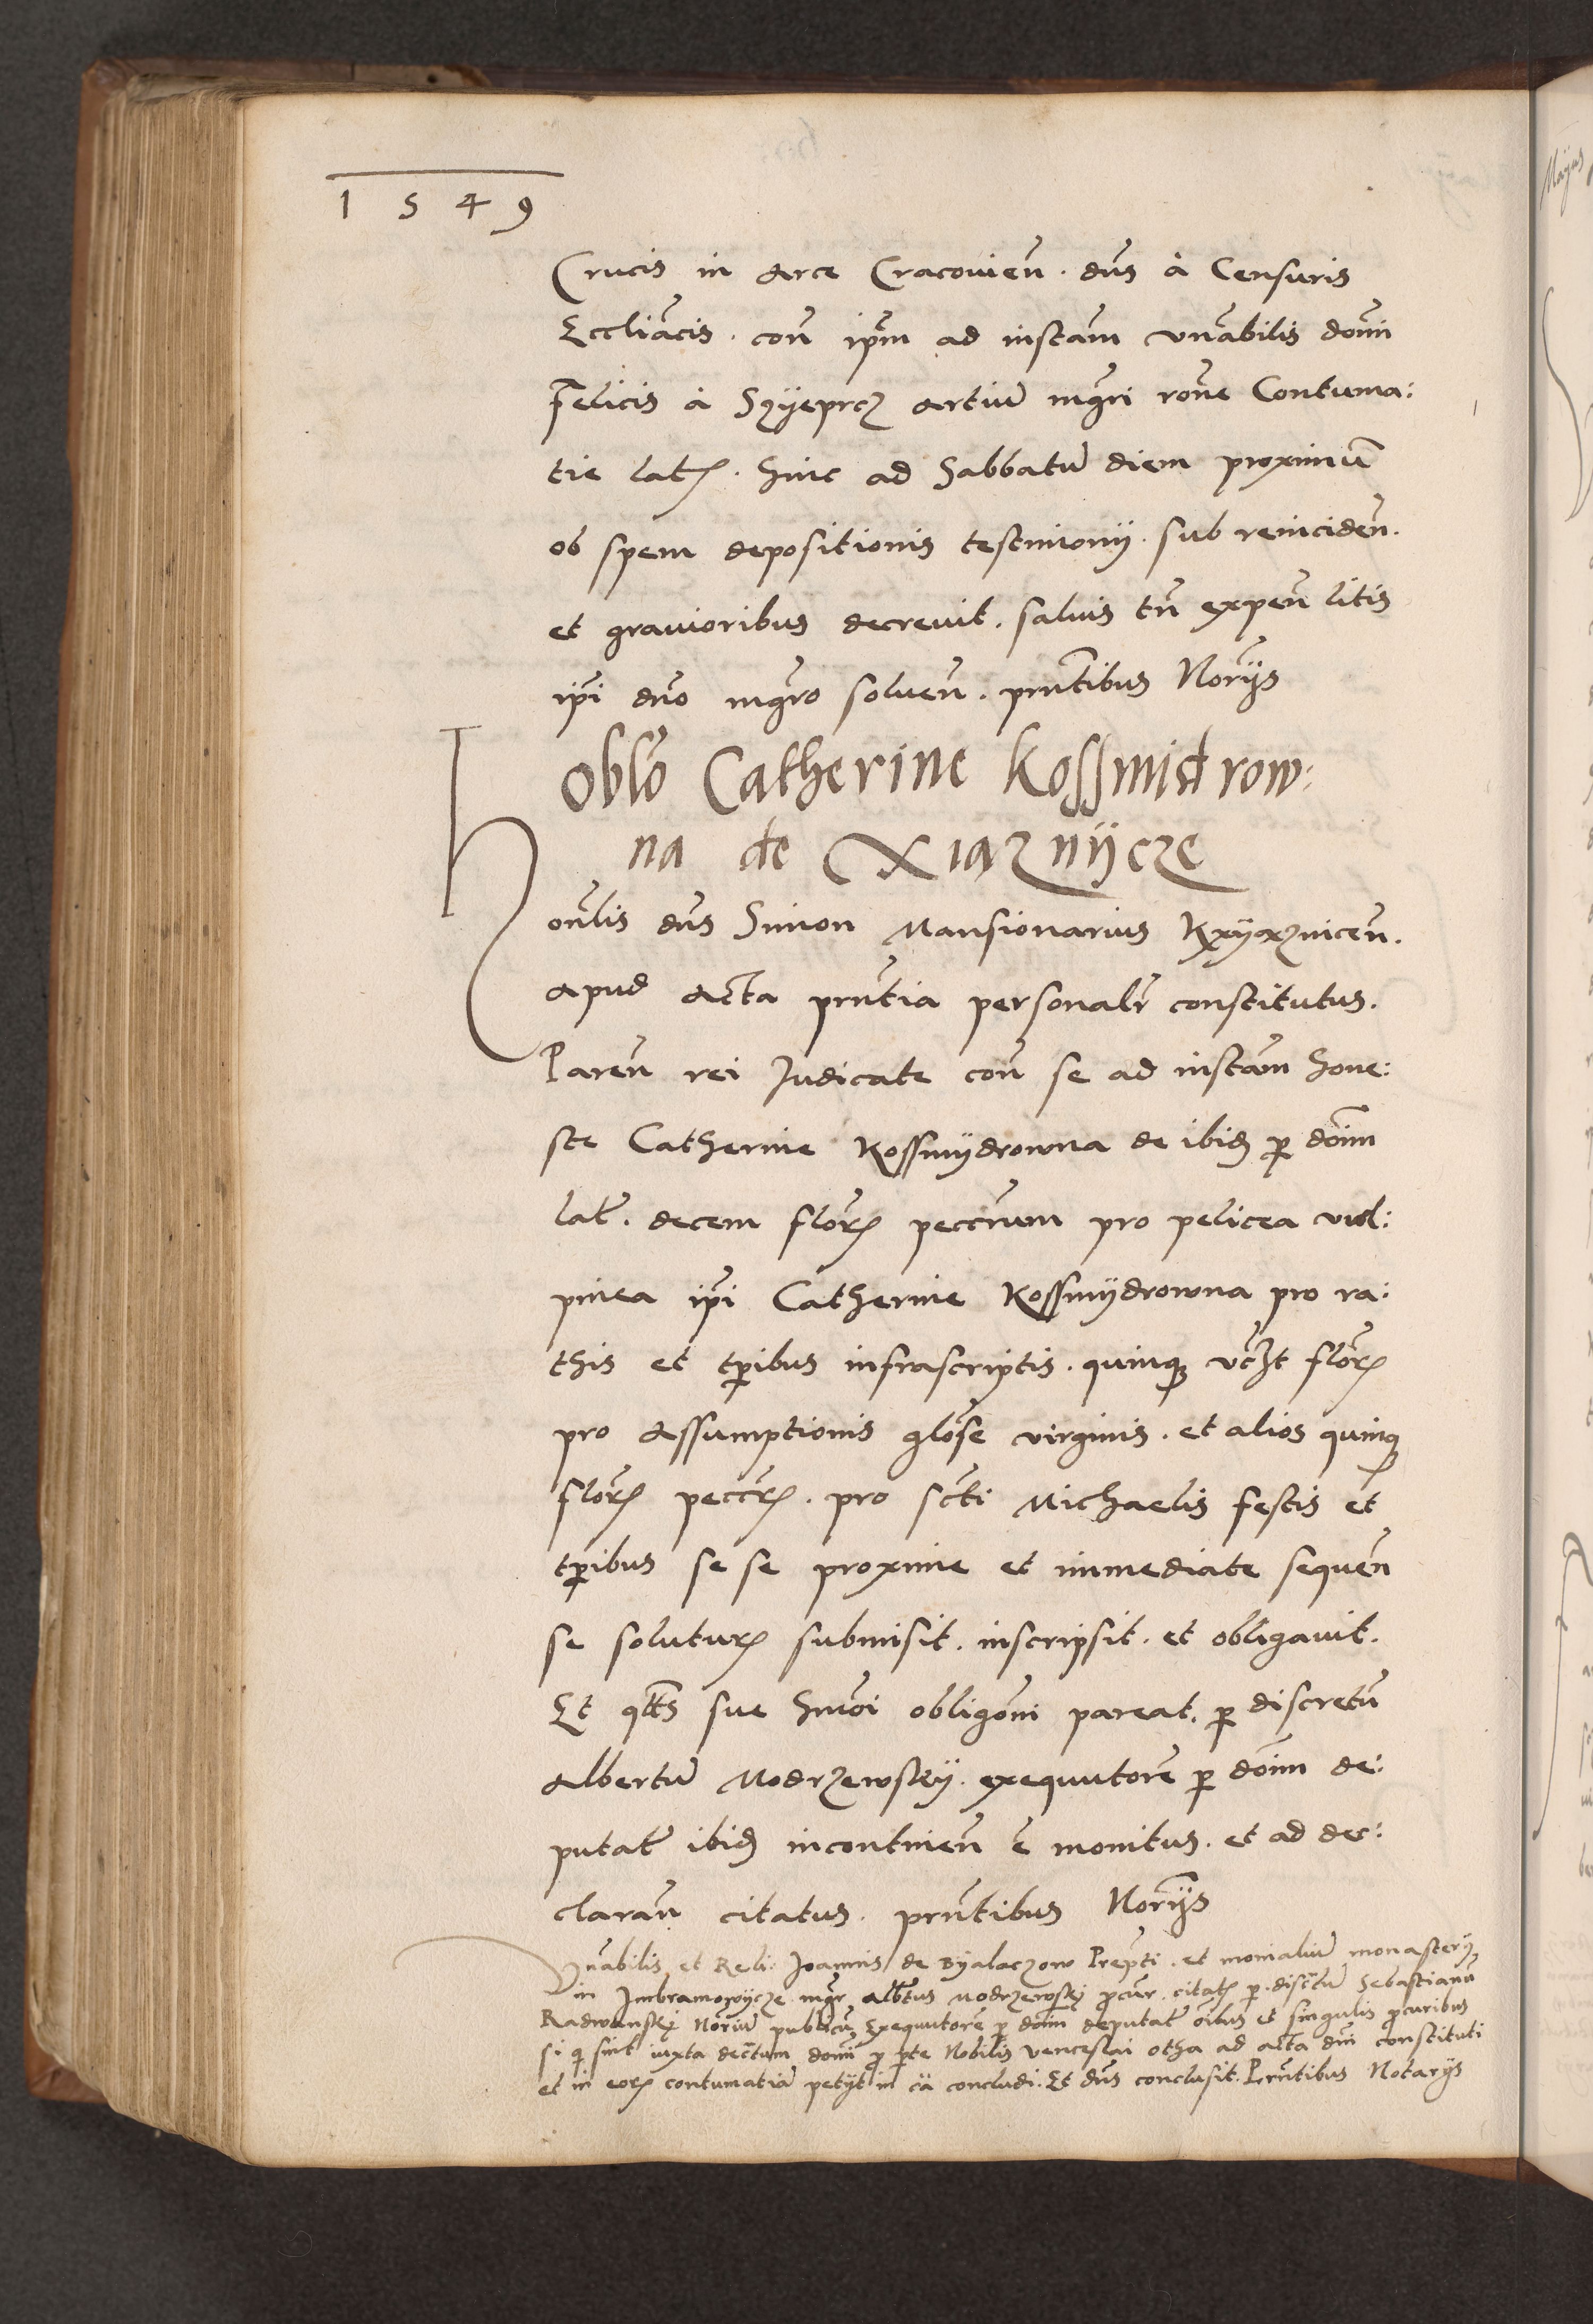 1549
Crucis in arce Cracovien̄. dn̄s à Censuris
Eccliācis. con̄ ipm̄ ad instam̄ vn̄abilis domi
Felicis à Szyeprcz artiū mgr̄i rōne Contuma:
tie lat. hinc ad Sabbatū diem proximū
ob spem depositionis testimonij. sub reinciden̄.
et gravioribus decrevit. salvis tn̄ expen̄ litis
ipi dn̄o mgr̄o solven̄. prn̄tibus Norijs
Oblō Catherine Kossmidrow:
na de Xiaznijcze
Honlis dn̄s Simon Mansionarius Kxyaznicen̄.
apud acta prn̄tia personalr̄ constitutus.
Paren̄ rei Judicate con̄ se ad instam̄ hone:
ste Catherine Kossmydrowna de ibid p doīm
lat. decem flor peccrum pro pelicea vul:
pinea ipi Catherine Kossmydrowna pro ra:
this et tpibus infrascriptis. quinq vczt flor
pro Assumptionis gloše virginis. et alios quinq
flor peccr. pro scti Michaelis festis et
tpibus se se proxime et immediate sequen̄
se solutur submisit. inscripsit. et obligavit.
Et qtts sue hmōi obligōni pareat. p discretū
Albertū Modrzewsky. exequutorē p doīm de:
putat ibid incontinen̄ ē monitus. et ad dec:
claran̄ citatus. prn̄tibus Norijs
Vn̄abilis et Reli: Joannis de Byalaczow Prep̄ti. et monialiū monasterij
in Imbramovijcze mgr Albtus Modrzewsky pcur. citat p. disctū Sebastianū
Radwansky Noriū publicū Exequutorē p doīm deputat oībus et singulis pcuribus
si q sint iuxta decrtum domi p pte Nobilis Venceslai Otha ad acta dm̄ constituti
et in eor contumatiā petijt in cā concludi. Et dn̄s conclusit. Prn̄tibus Notarijs
Majus